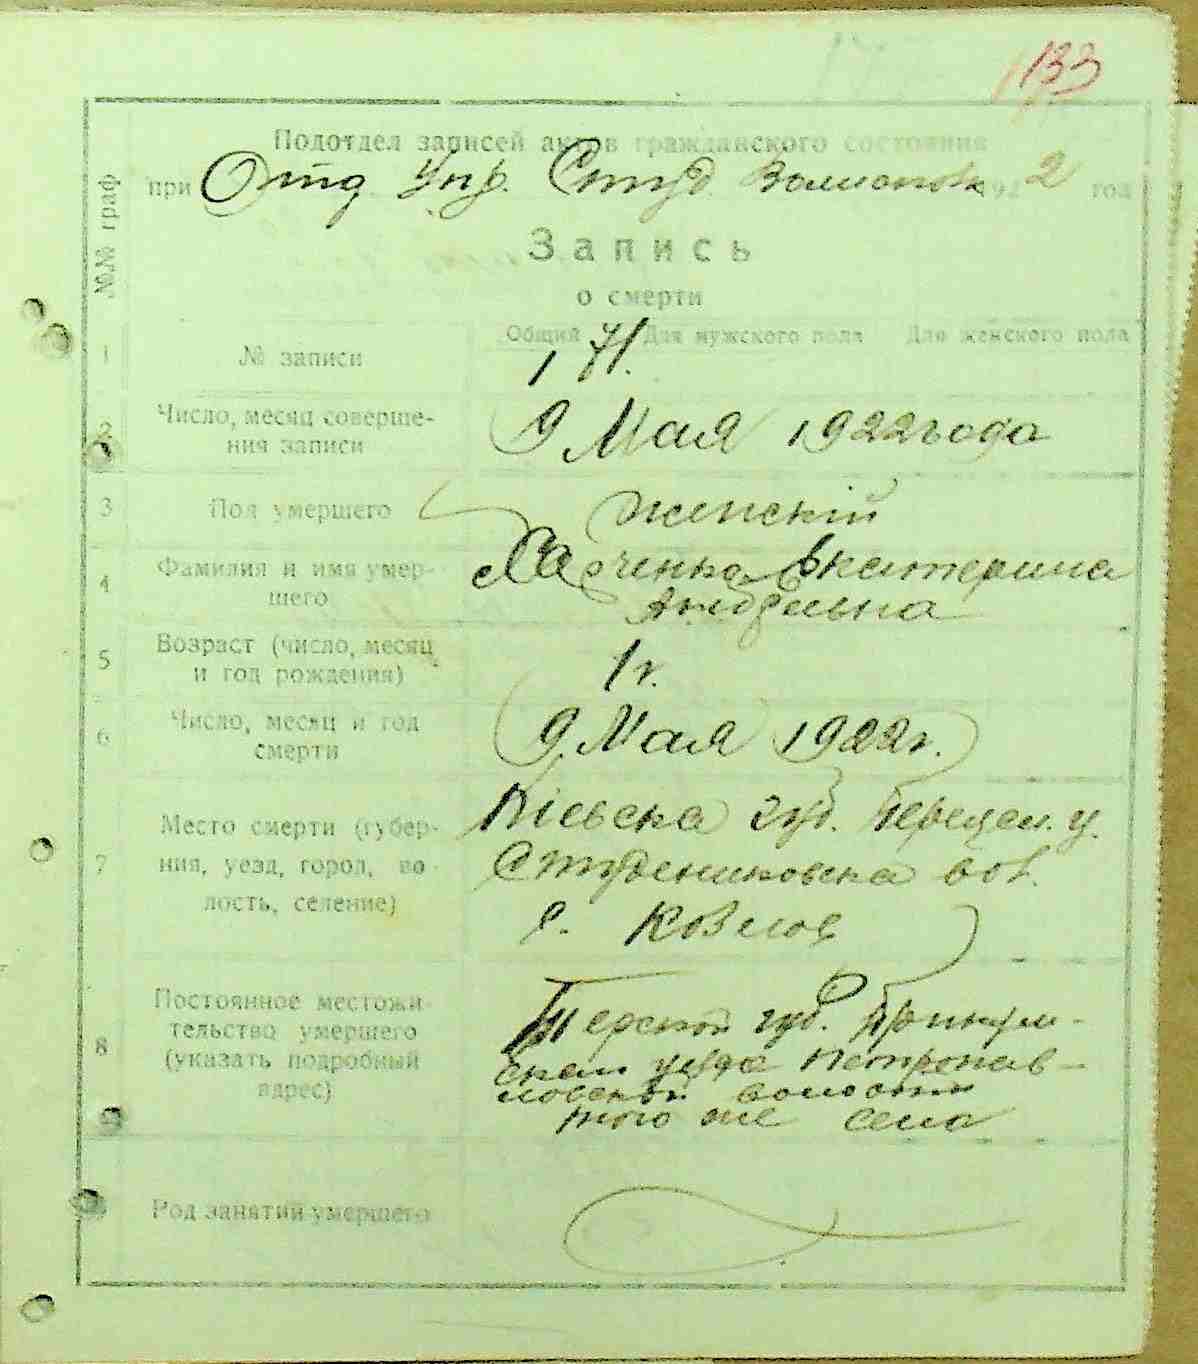 133
Подотдел записей актов гражданского состояния
при Отд Упр. Студ 1922 год
№№ граф
Запись
о смерти
Общий Для мужского пола Для женского пола
1 № записи 171.
2 Число, месяц соверше-
ния записи 9 Мая 1922 года
3 Пол умершего женский
4 Фамилия и имя умер-
шего Харченко Екатерина
Андреевна
5 Возраст (число, месяц
и год рождения) 1 г.
6 Число, месяц и год
смерти 9 Мая 1922 г.
7 Место смерти (губер-
ния, уезд, город, во-
лость, селение) Кіевска губ. у.
Студениковска вол.
с. Козлов
8 Постоянное местожи-
тельство умершего
(указать подробный
адрес) Терской губ.
уезда Петропав-
ловской волости
того же села
Род занятий умершего